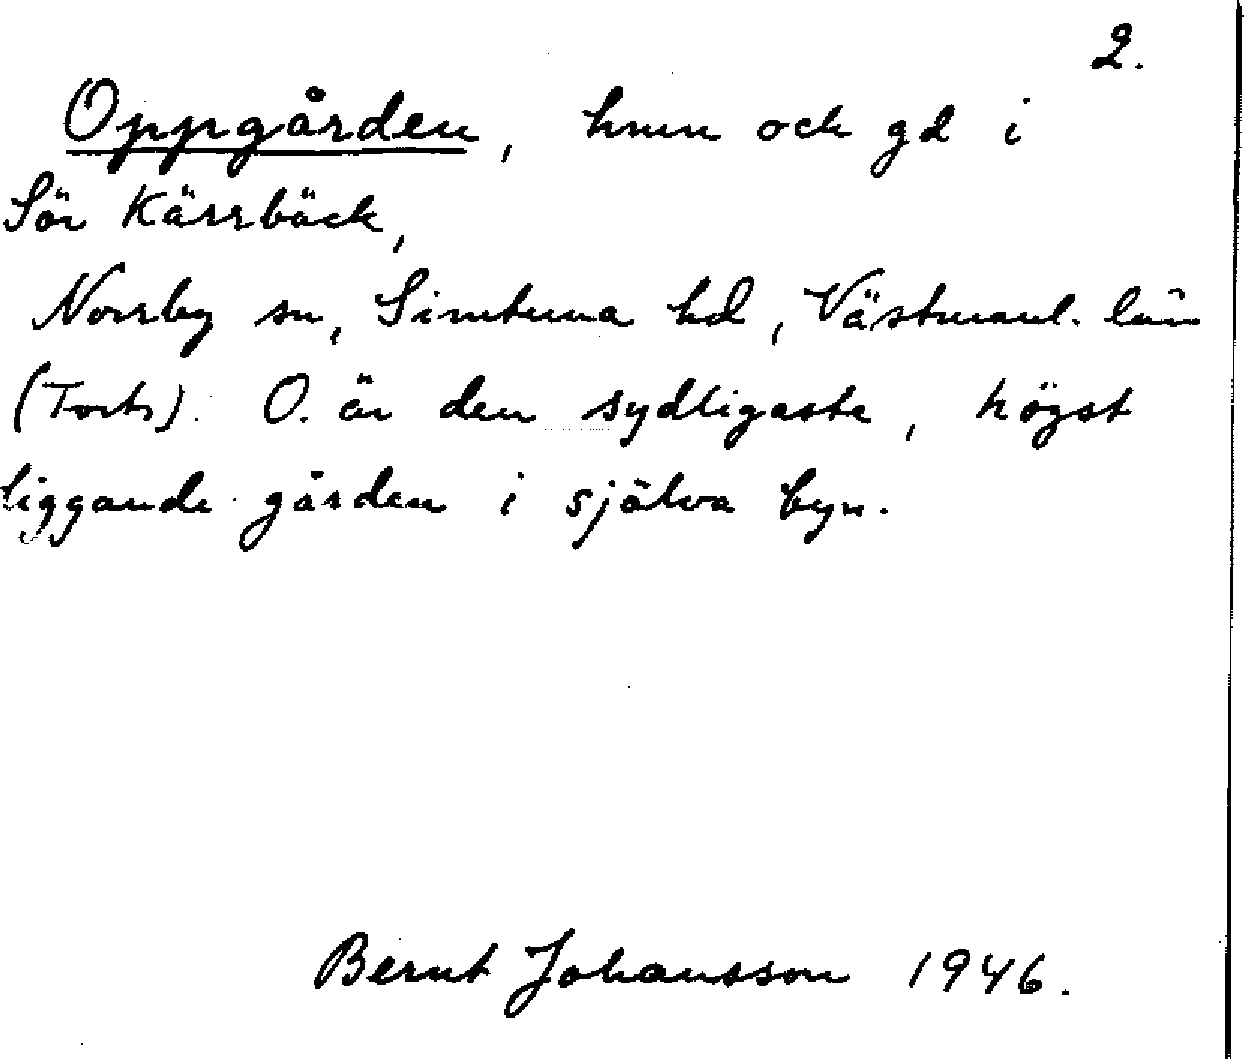 2.
Oppgården, hmn och gd i
Sör Kärrbäck,
Norrby sn, Simtuna hd, Västmanl. län
(Forts). O. är den sydligaste, högst
liggande gården i själva byn.
Bernt Johansson 1946.